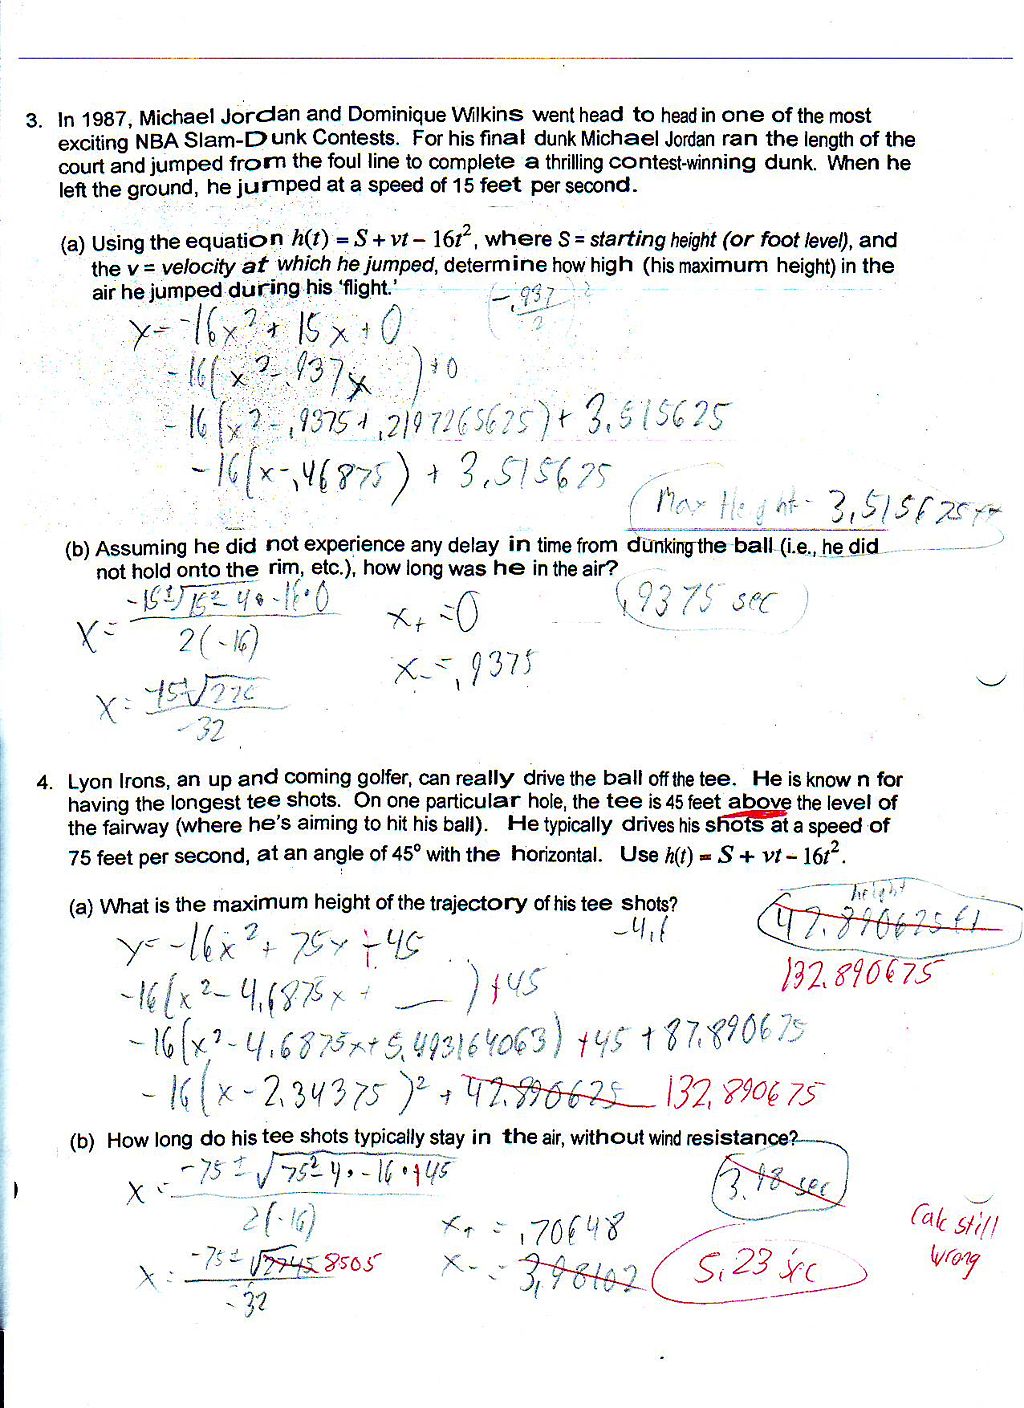 3. In 1987, Michael Jordan and Dominique Wilkins went head to head in one of the most
exciting NBA Slam-Dunk Contests. For his final dunk Michael Jordan ran the length of the
court and jumped from the foul line to complete a thrilling contest-winning dunk. When he
left the ground, he jumped at a speed of 15 feet per second.
(a) Using the equation h(t) = S + vt – 16t², where S = starting height (or foot level), and
the v = velocity at which he jumped, determine how high (his maximum height) in the
air he jumped during his 'flight.'
(-.937/2)²
y= -16x² + 15x + 0
-16(x² - .937x )+0
-16(x² - .9375 + .2197265625) + 3.515625
-16(x-.46875) + 3.515625
Max Height - 3.515625 ft
(b) Assuming he did not experience any delay in time from dunking the ball (i.e., he did
not hold onto the rim, etc.), how long was he in the air?
x = -15±√15²-4•-16•0 / 2(-16)
x+ = 0
.9375 sec
x- = .9375
x = -15±√225 / -32
4. Lyon Irons, an up and coming golfer, can really drive the ball off the tee. He is known for
having the longest tee shots. On one particular hole, the tee is 45 feet above the level of
the fairway (where he's aiming to hit his ball). He typically drives his shots at a speed of
75 feet per second, at an angle of 45° with the horizontal. Use h(t) = S + vt – 16t².
(a) What is the maximum height of the trajectory of his tee shots?
height
-4.6
42.890625 ft
y= -16x² + 75x + 45
132.890675
-16(x² - 4.6875x + __ )+45
-16(x² - 4.6875x + 5.493164063) +45 + 87.890675
-16(x - 2.34375)² + 42.890625 132.890675
(b) How long do his tee shots typically stay in the air, without wind resistance?
x = -75 ± √75²-4•-16•+45 / 2(-16)
3.98 sec
x+ = .70648
Calc still
wrong
x = -75 ± √2745 8505 / -32
x- = 3.98102
5.23 sec